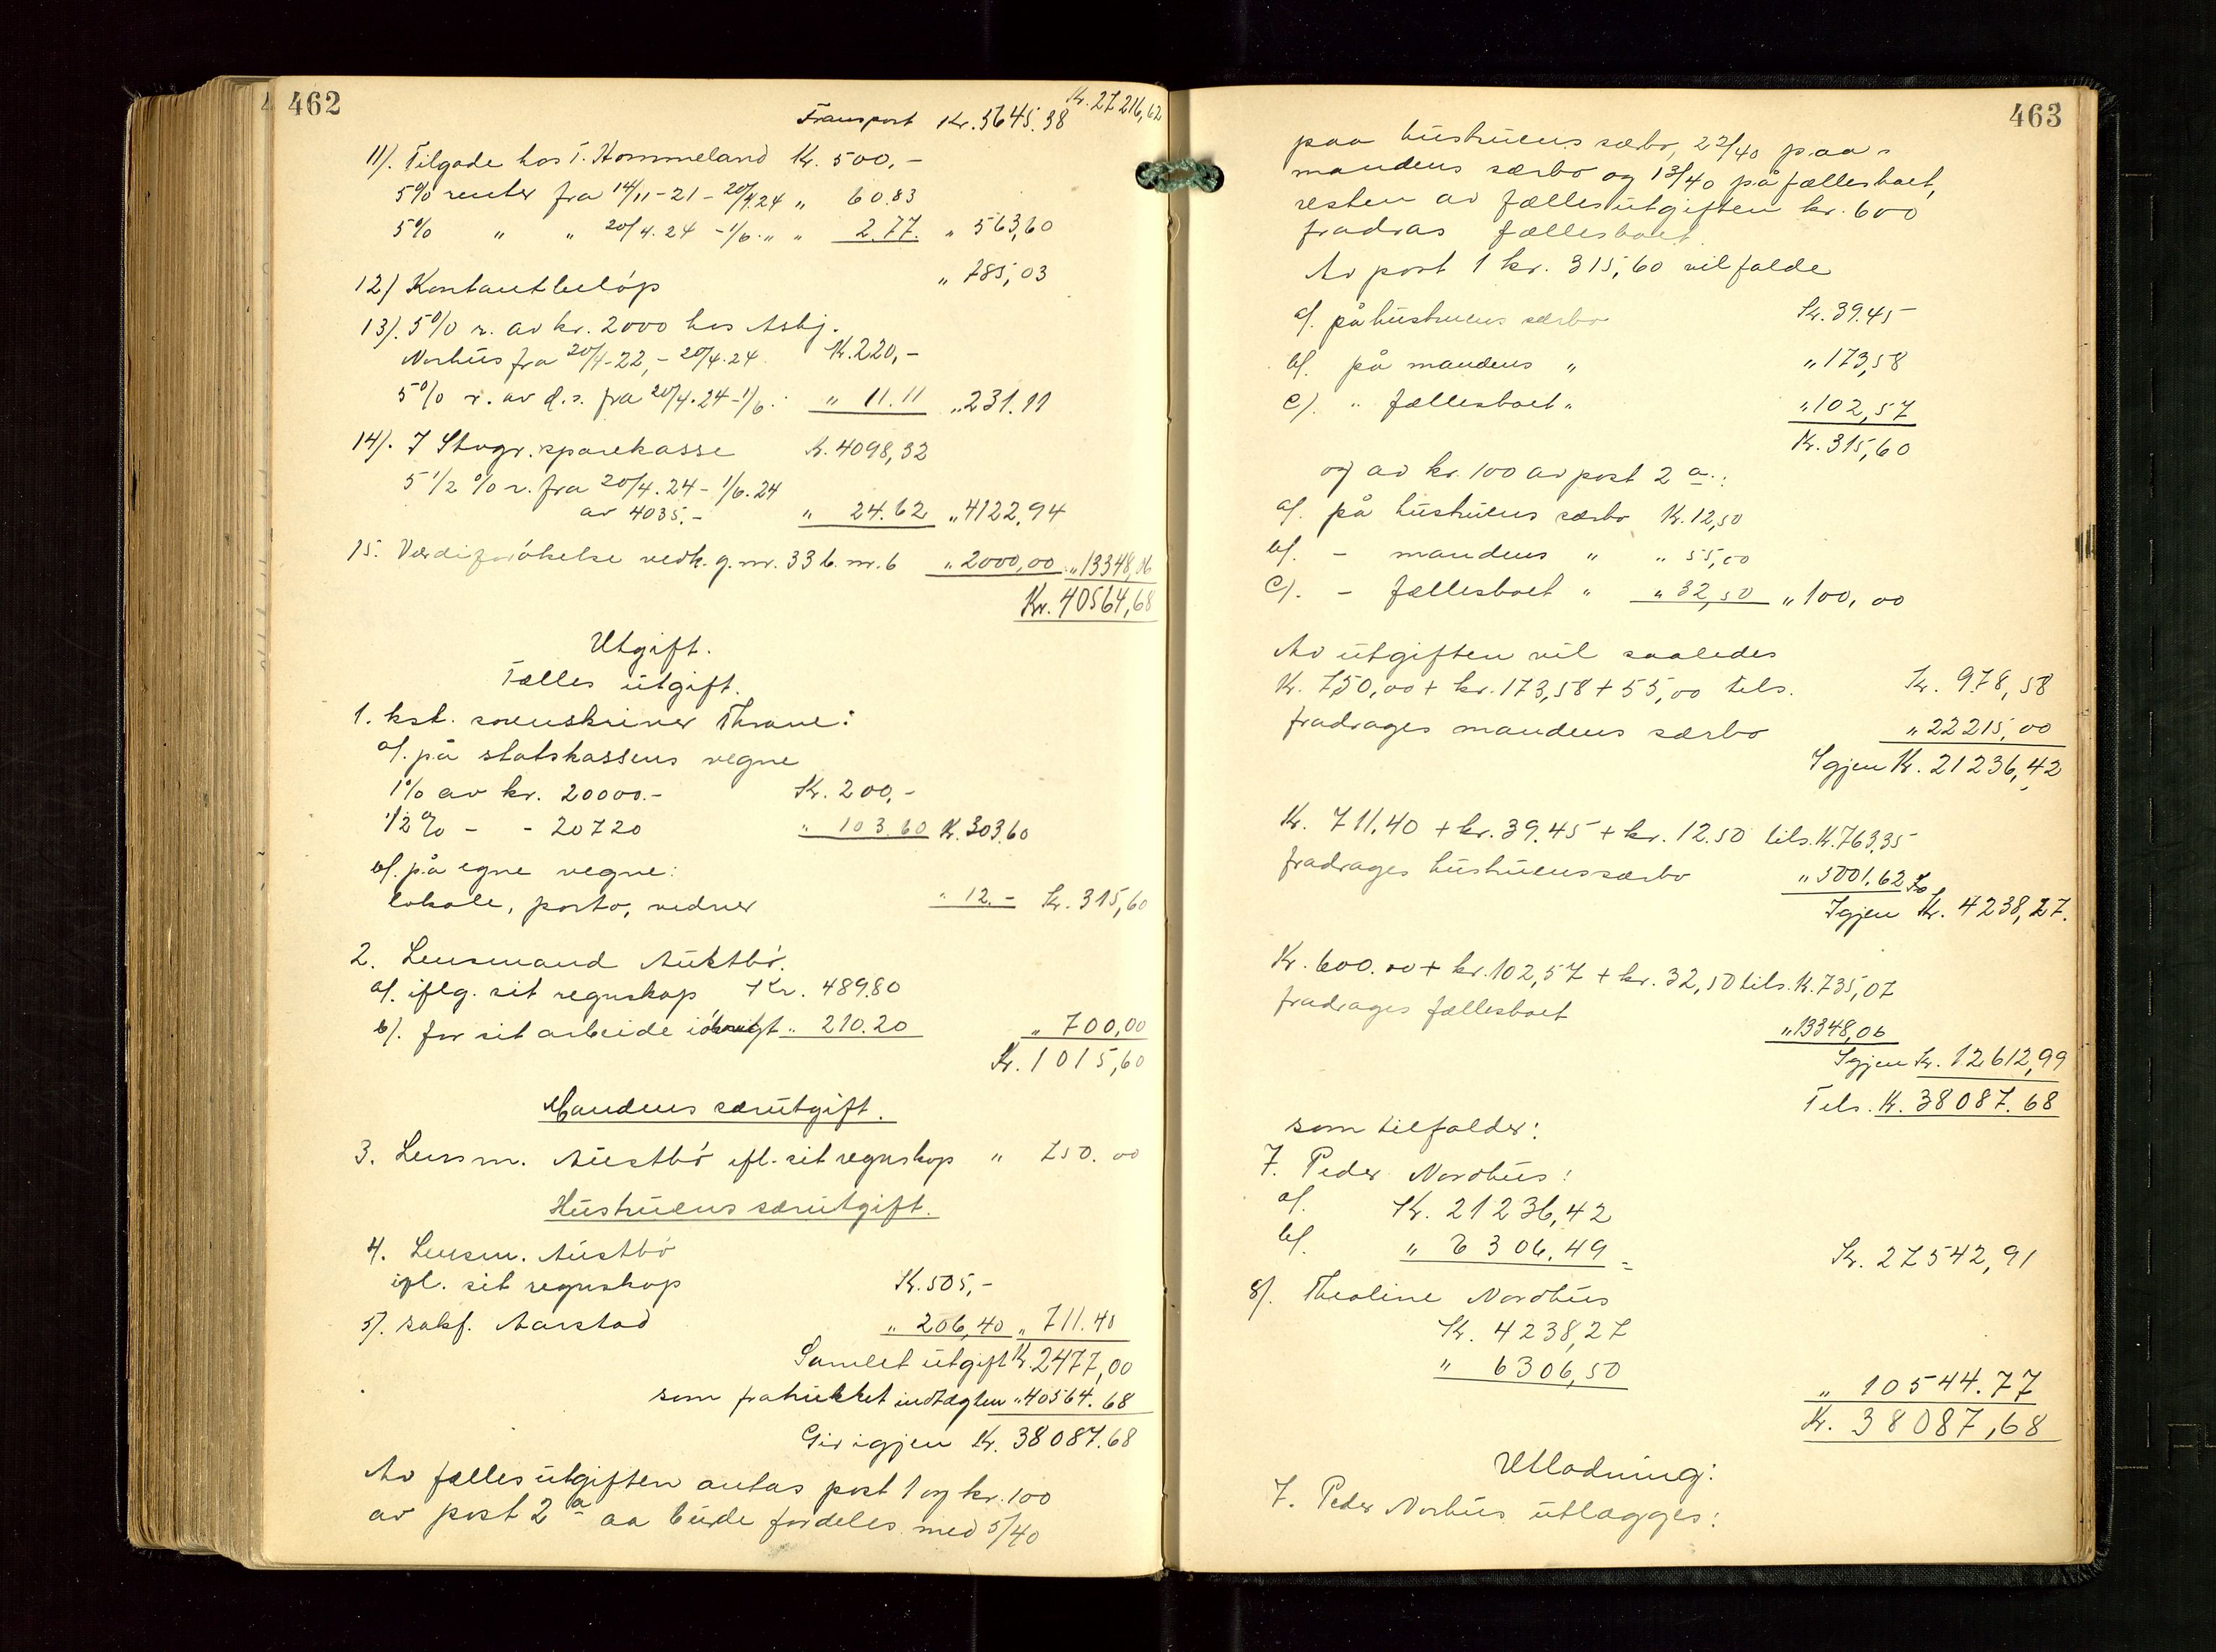 462
Kr. 27216,62
Transport Kr. 5645.38
11/. Tilgode hos T. Hommeland Kr. 500,-
5% renter fra 14/11-21 - 20/4.24 " 60.83
5% " " 20/4.24 - 1/6 " " 2.77. " 563,60
12/ Kontantbeløp " 785,03
13/. 5% r. av kr. 2000 hos Asbj.
Norhus fra 20/4-22, - 20/4.24 Kr. 220,-
5% r. av d.s. fra 20/4.24 - 1/6. " 11.11 " 231.11
14/. I Stvgr. sparekasse Kr. 4098,32
5 1/2 % r. fra 20/4.24 - 1/6.24
av 4035.- " 24.62 " 4122,94
15. Værdiforøkelse vedk. g.nr. 33 b.nr. 6 " 2000,00 " 13348,06
Kr. 40564,68
Utgift.
Fælles utgift.
1. kst. sorenskriver Thrane:
a/. på statskassens vegne
1% av kr. 20000.- Kr. 200,-
1/2% - - 20720 " 103.60 Kr. 303.60
b/. på egne vegne:
lokale, porto, vidner " 12.- Kr. 315,60
2. Lensmand Austbø.
a/. iflg. sit regnskap Kr. 489.80
b/. for sit arbeide iøvrigt " 210.20 " 700,00
Kr. 1015,60
Mandens særutgift.
3. Lensm. Austbø ifl. sit regnskap " 750.00
Hustruens særutgift.
4. Lensm. Austbø
ifl. sit regnskap Kr. 505,-
5/. sakf. Aarstad " 206,40 " 711.40
Samlet utgift Kr. 2477,00
som fratrukket indtægten " 40564.68
Gir igjen Kr. 38087.68
Av fællesutgiften antas post 1 og kr. 100
av post 2 a aa burde fordeles med 5/40
463
paa hustruens særbo, 22/40 paa
mandens særbo og 13/40 på fællesboet,
resten av fællesutgiften kr. 600
fradras fællesboet.
Av post 1 kr. 315,60 vil falde
a/. på hustruens særbo Kr. 39.45
b/. på mandens " " 173,58
c/. " fællesboet " " 102,57
Kr. 315,60
og av kr. 100 av post 2 a.:
a/. på hustruens særbo Kr. 12,50
b/. - mandens " " 55,00
c/. - fællesboet " " 32,50 " 100,00
Av utgiften vil saaledes
Kr. 750,00 + kr. 173,58 + 55,00 tils. Kr. 978,58
fradrages mandens særbo " 22215,00
Igjen Kr. 21236,42
Kr. 711.40 + kr. 39.45 + kr. 12.50 tils. Kr. 763.35
fradrages hustruens særbo " 5001.62
Igjen Kr. 4238,27.
Kr. 600.00 + kr. 102,57 + kr. 32,50 tils. Kr. 735,07
fradrages fællesboet
" 13348,06
Igjen Kr. 12612,99
Tils. Kr. 38087.68
som tilfalder:
7. Peder Nordhus:
a/. Kr. 21236,42
b/. " 6306.49 Kr. 27542,91
8/. Theoline Nordhus
Kr. 4238,27
" 6306,50
" 10544.77
Kr. 38087,68
Utlodning:
7. Peder Norhus utlægges: